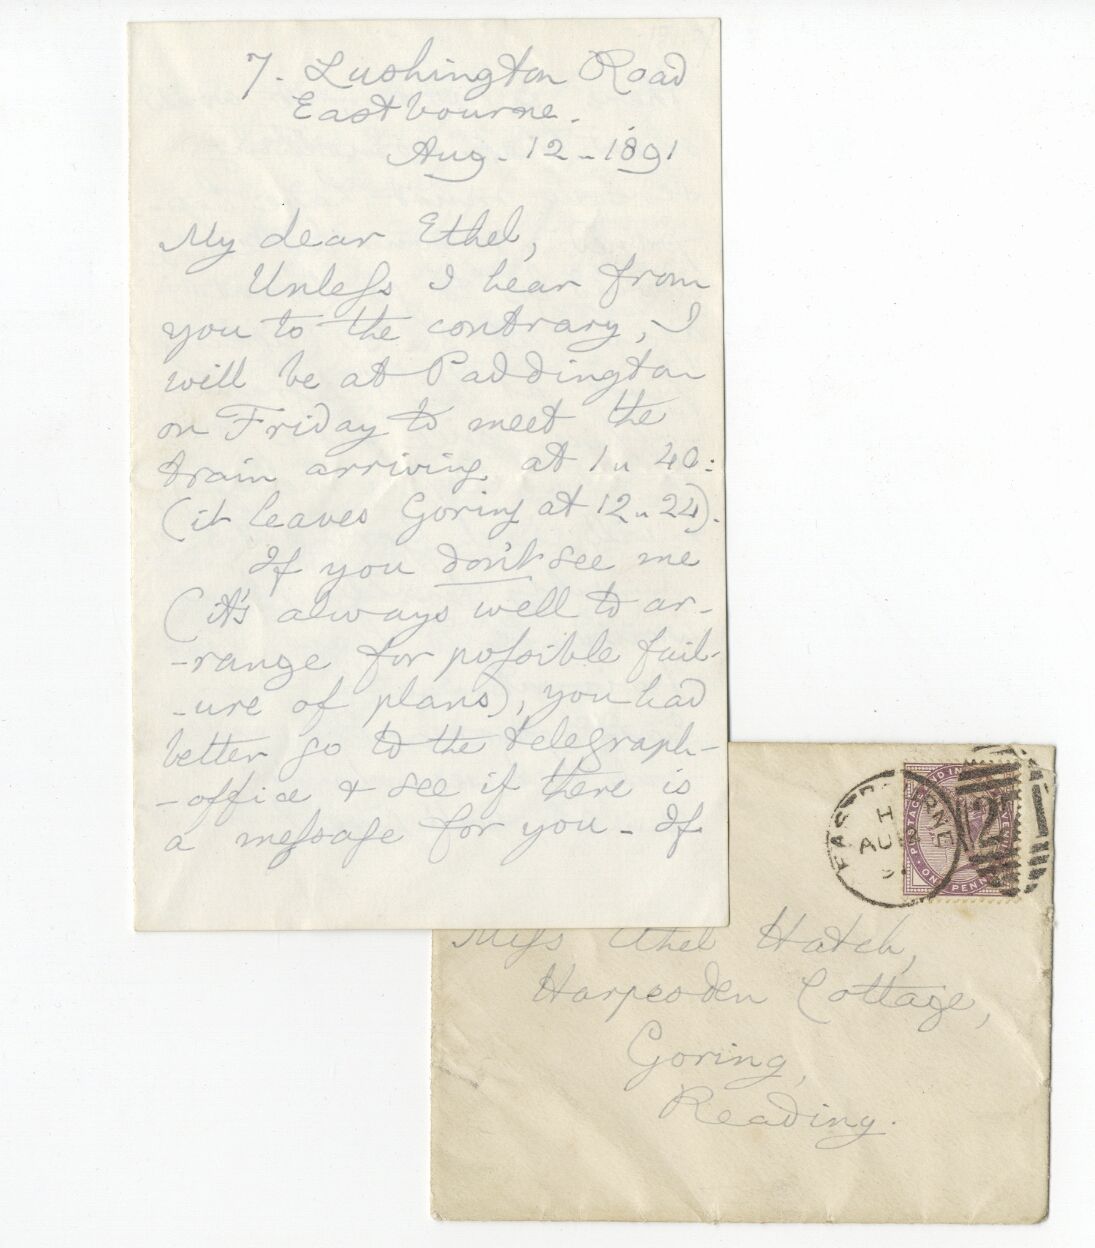 7. Lushington Road
Eastbourne.
Aug. 12. 1891
My dear Ethel,
Unless I hear from
you to the contrary, I
will be at Paddington
on Friday to meet the
train arriving at 1.. 40:
(it leaves Goring at 12.. 24).
If you don't see me
(it's always well to ar-
-range for possible fail-
-ure of plans), you had
better go to the telegraph-
-office & see if there is
a message for you - If
EASTBOURNE
H
AU
POSTAGE AND IN
ONE PENNY
Miss Ethel Hatch,
Cottage,
Goring,
Reading.